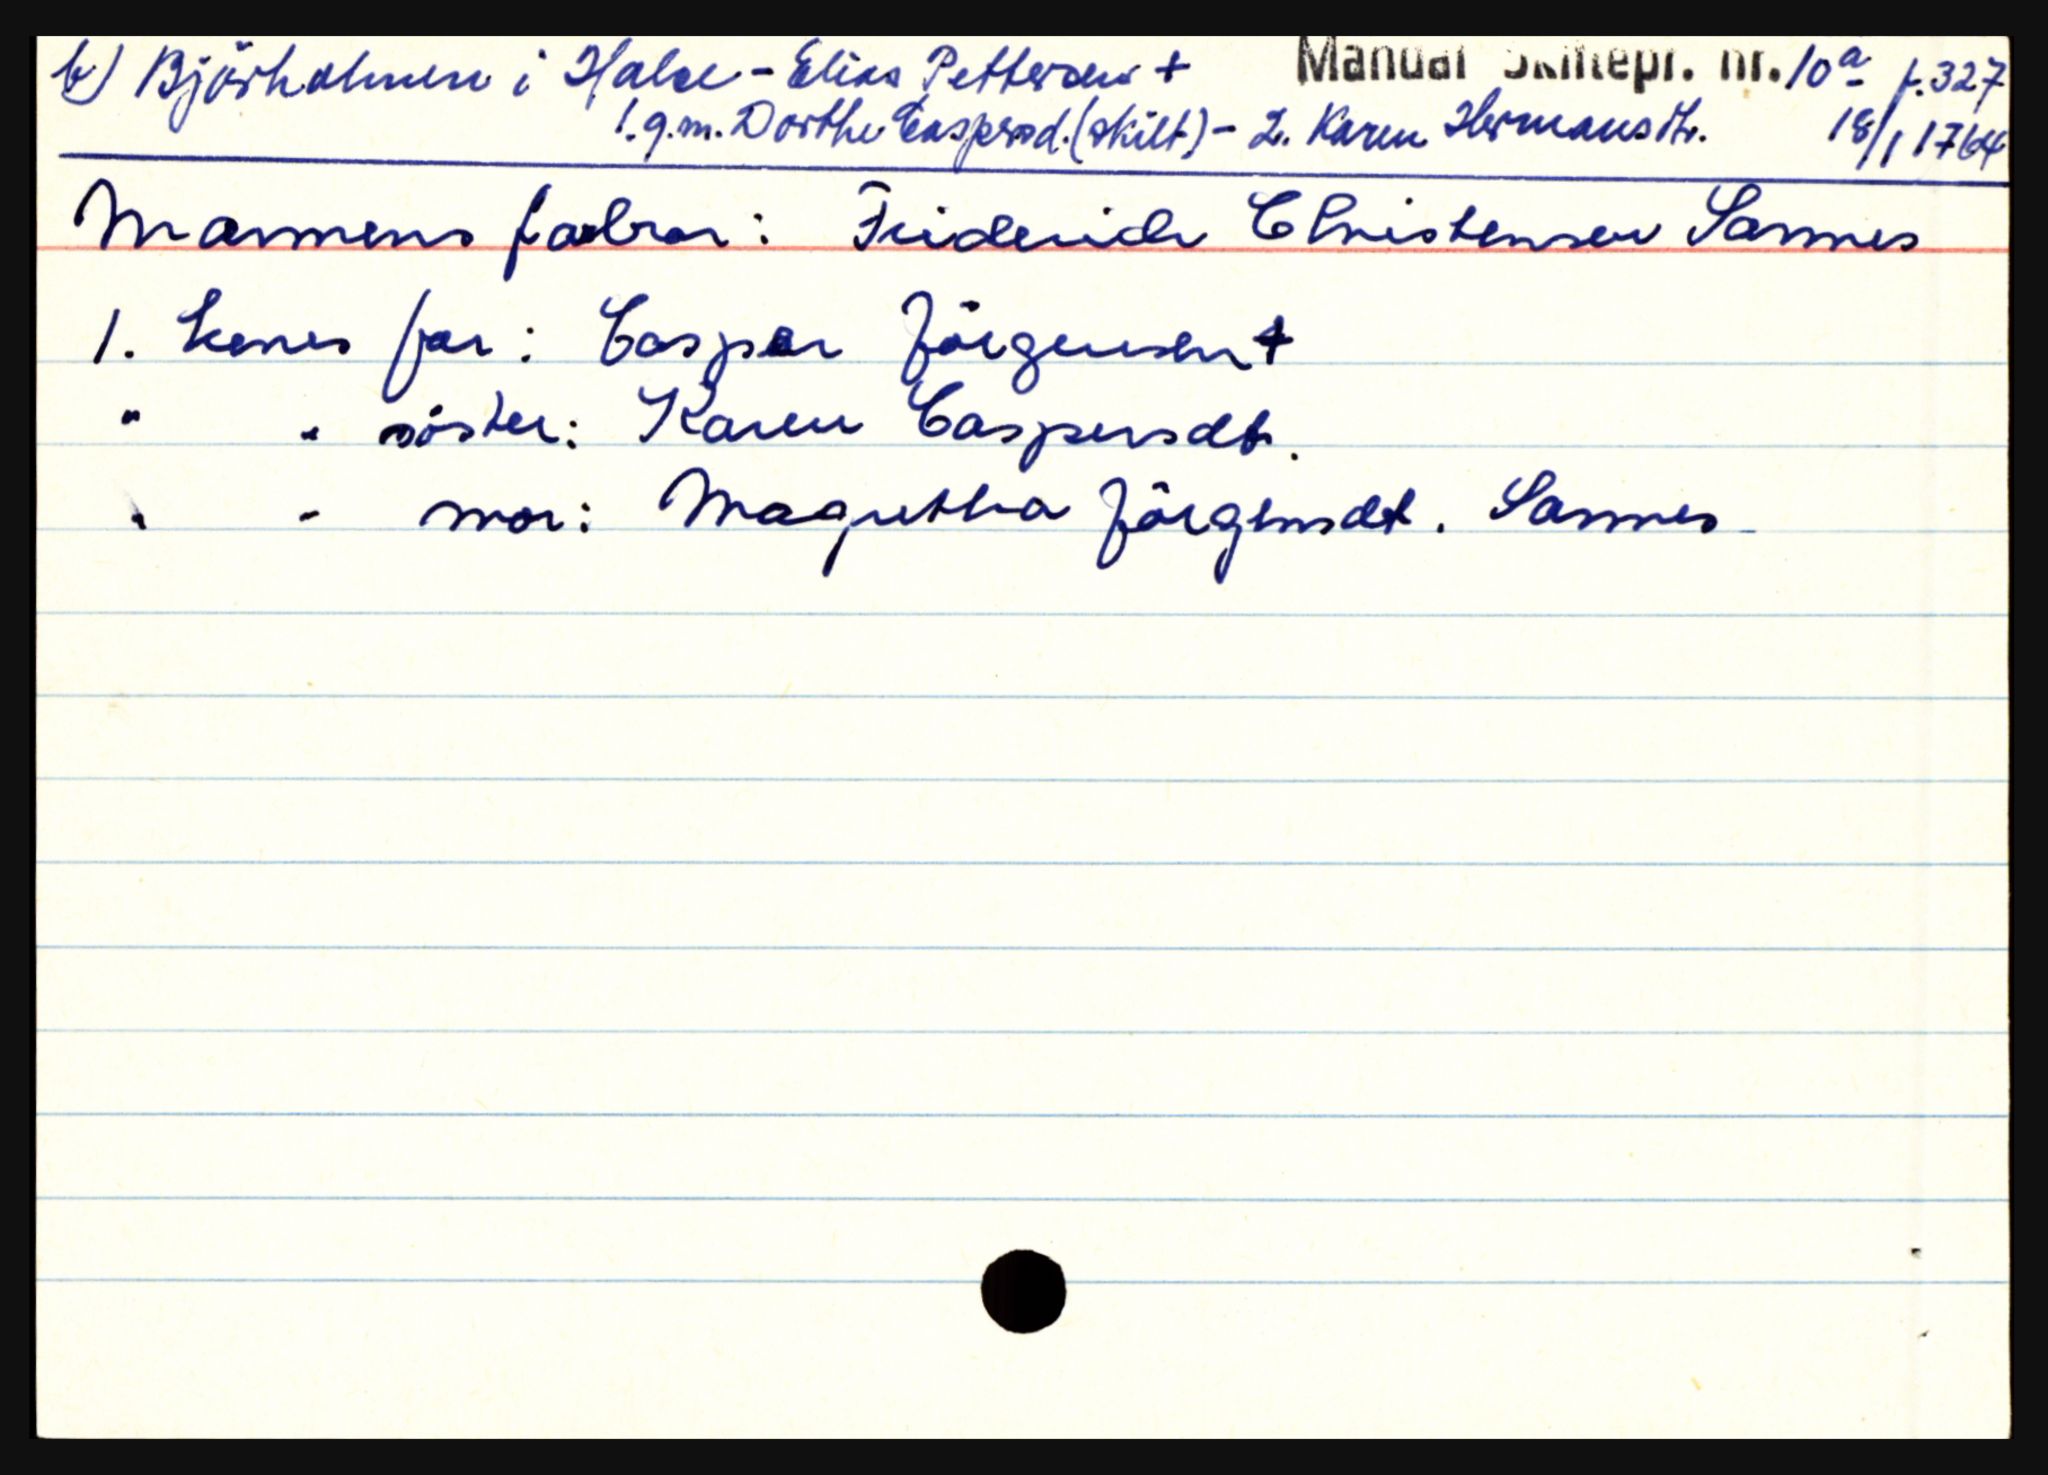 b) Björholmen i Halse - Elias Pettersen + Manual Skiftepr. nr. 10a f. 327
1. g.m. Dorthe Caspersd. (skilt) - 2. Karen Hermansdtr. 18/1 1764
Mannens farbror: Friderich Christensen Sannes
1. kones far: Casper Jörgensen +
" " söster: Karen Caspersdt.
" " mor: Magretha Jörgensdt. Sannes